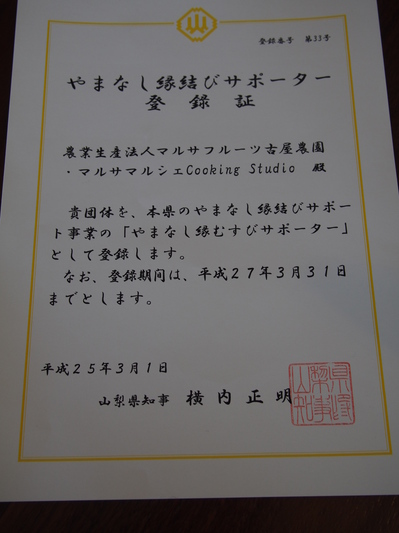 登録番号　第33号
やまなし縁結びサポーター
登　録　証
農業生産法人マルサフルーツ古屋農園
・マルサマルシェCooking Studio　殿
貴団体を、本県のやまなし縁結びサポー
ト事業の「やまなし縁むすびサポーター」
として登録します。
なお、登録期間は、平成２７年３月３１日
までとします。
平成２５年３月１日
山梨県知事　横　内　正　明